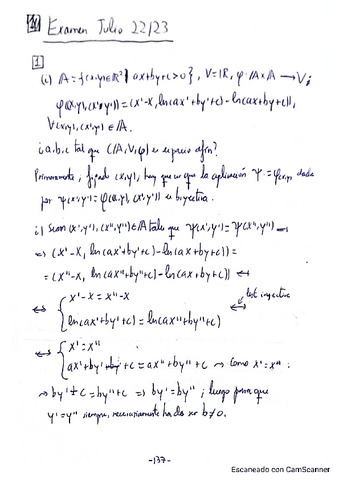 Examen Julio 22/23
1
(i) A = {(x,y)∈ℝ² | ax+by+c>0}, V=ℝ, φ:A×A → V;
φ((x,y),(x',y')) = (x'-x, ln(ax'+by'+c)-ln(ax+by+c)),
∀(x,y),(x',y')∈A.
¿a,b,c tal que (A,V,φ) es espacio afín?
Primeramente, fijado (x,y), hay que ver que la aplicación Ψ:=φ(x,y) dada
por Ψ(x',y')=φ((x,y),(x',y')) es biyectiva.
i) Sean (x',y'), (x'',y'')∈A tales que Ψ(x',y')=Ψ(x'',y'') →
⇒ (x'-x, ln(ax'+by'+c)-ln(ax+by+c)) =
= (x''-x, ln(ax''+by''+c)-ln(ax+by+c)) ↔
↔ { x'-x = x''-x
ln(ax'+by'+c) = ln(ax''+by''+c) ↔ inyectiva
↔ { x'=x''
ax'+by'+c = ax''+by''+c → Como x'=x'':
→ by'+c = by''+c ⇒ by'=by''; luego para que
y'=y'' siempre, necesariamente ha de ser b≠0.
-137-
Escaneado con CamScanner